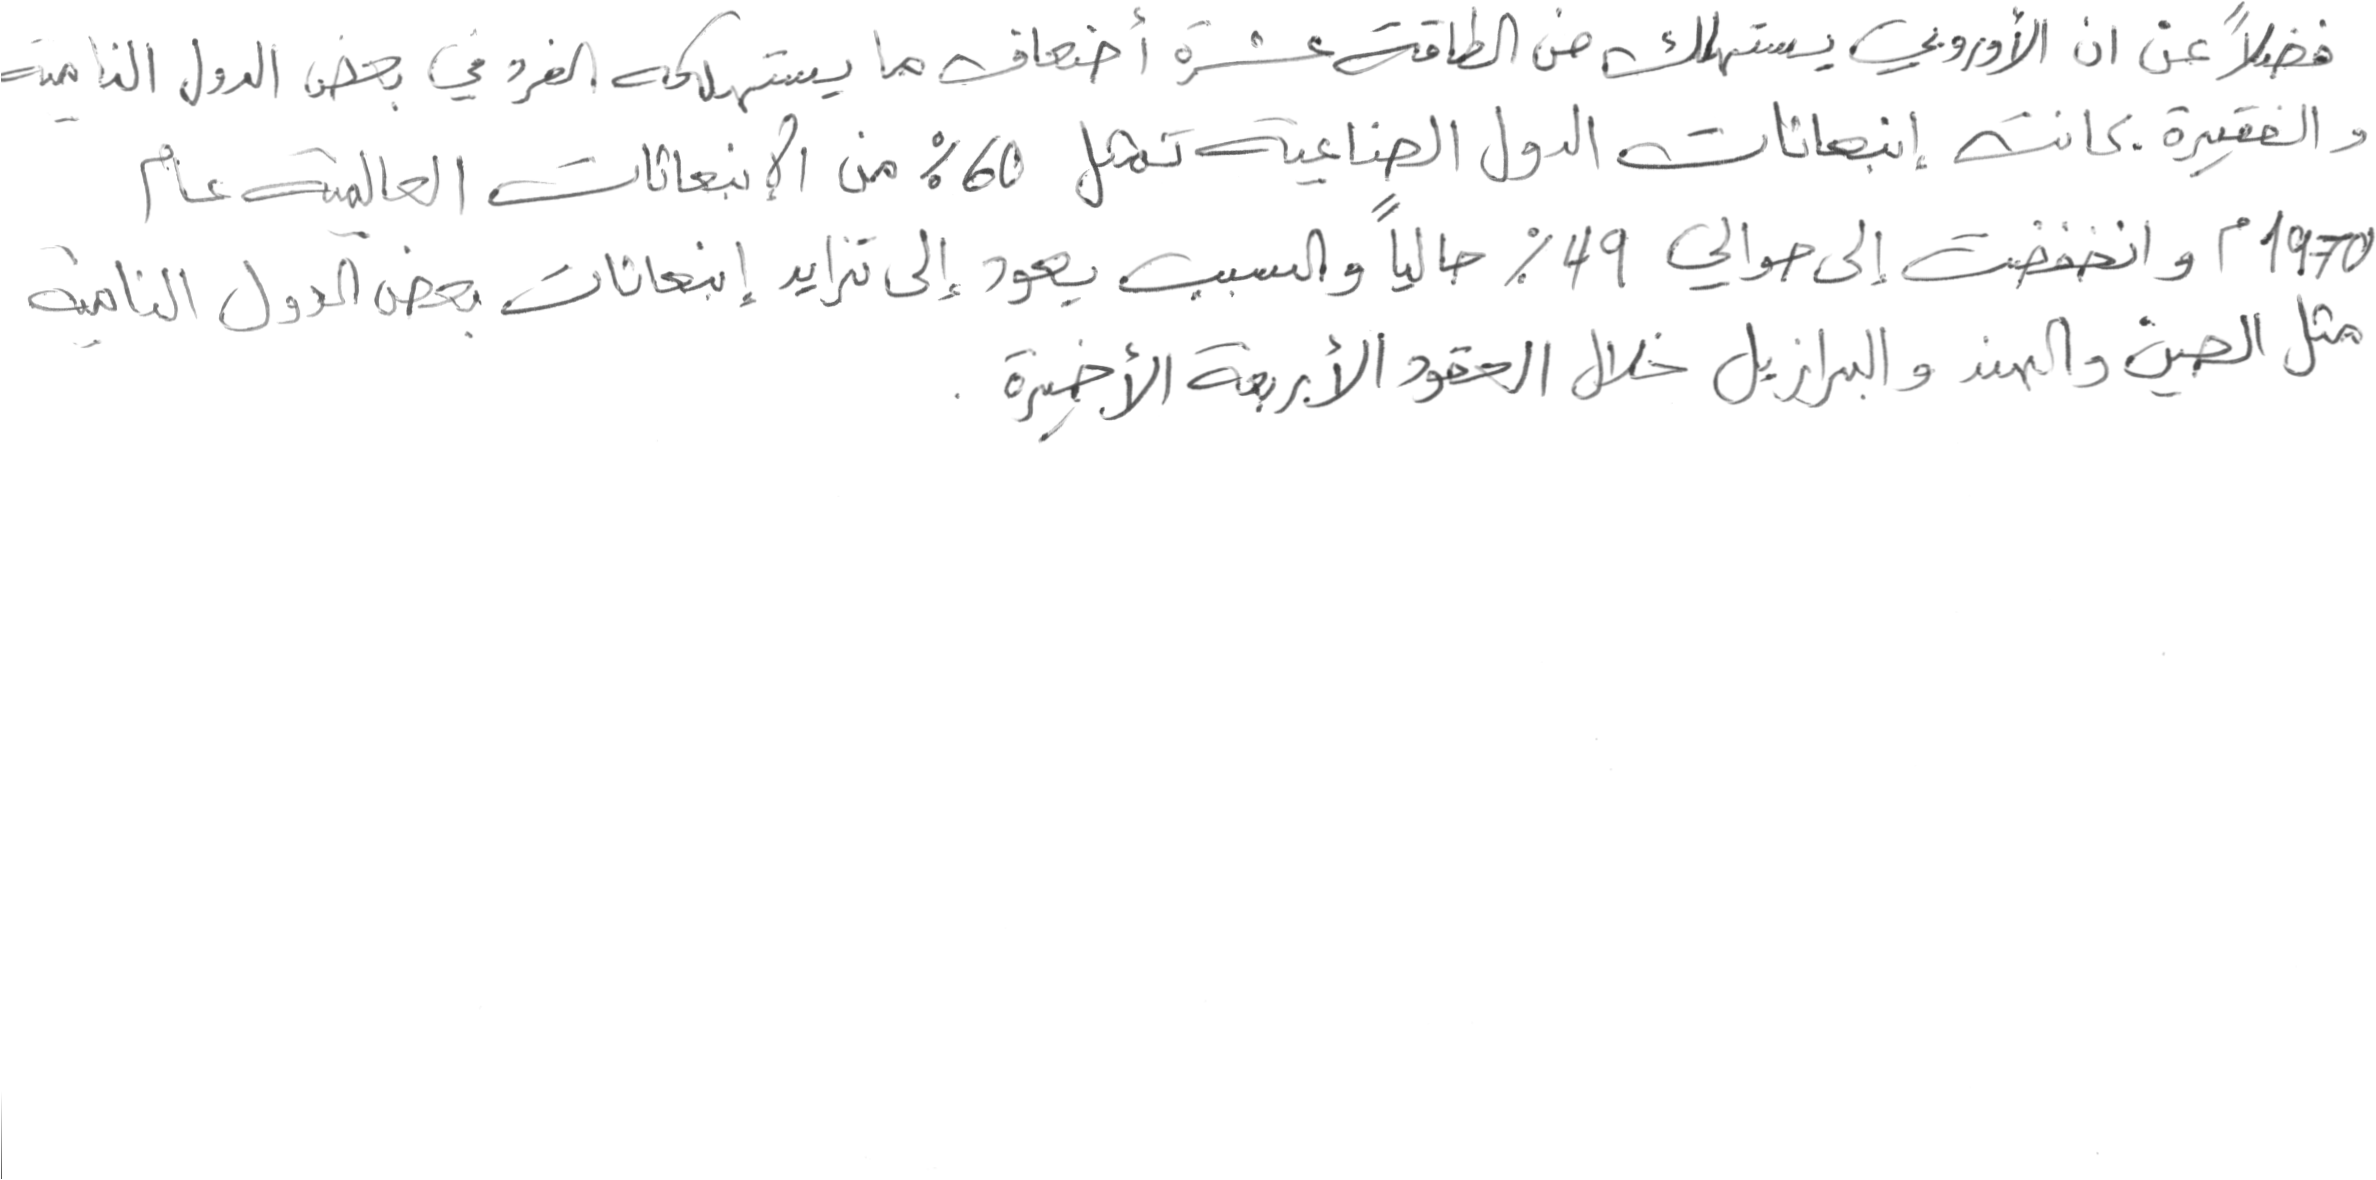 فضلاً عن ان الأوروبي يستهلك من الطاقة عشرة أضعاف ما يستهلكه الفرد في بعض الدول النامية
والفقيرة . كانت إنبعاثات الدول الصناعية تمثل 60% من الإنبعاثات العالمية عام
1970م وانخفضت إلى حوالي 49% حالياً والسبب يعود إلى تزايد إنبعاثات بعض الدول النامية
مثل الصين والهند والبرازيل خلال العقود الأربعة الأخيرة .